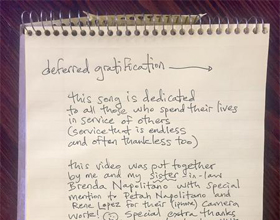 deferred gratification →
this song is dedicated
to all those who spend their lives
in service of others
(service that is endless
and often thankless too)
this video was put together
by me and my sister-in-law
Brenda Napolitano with special
mention to Petah Napolitano and
Rene Lopez for their (iphone) camera
work! ☺ Special extra thanks